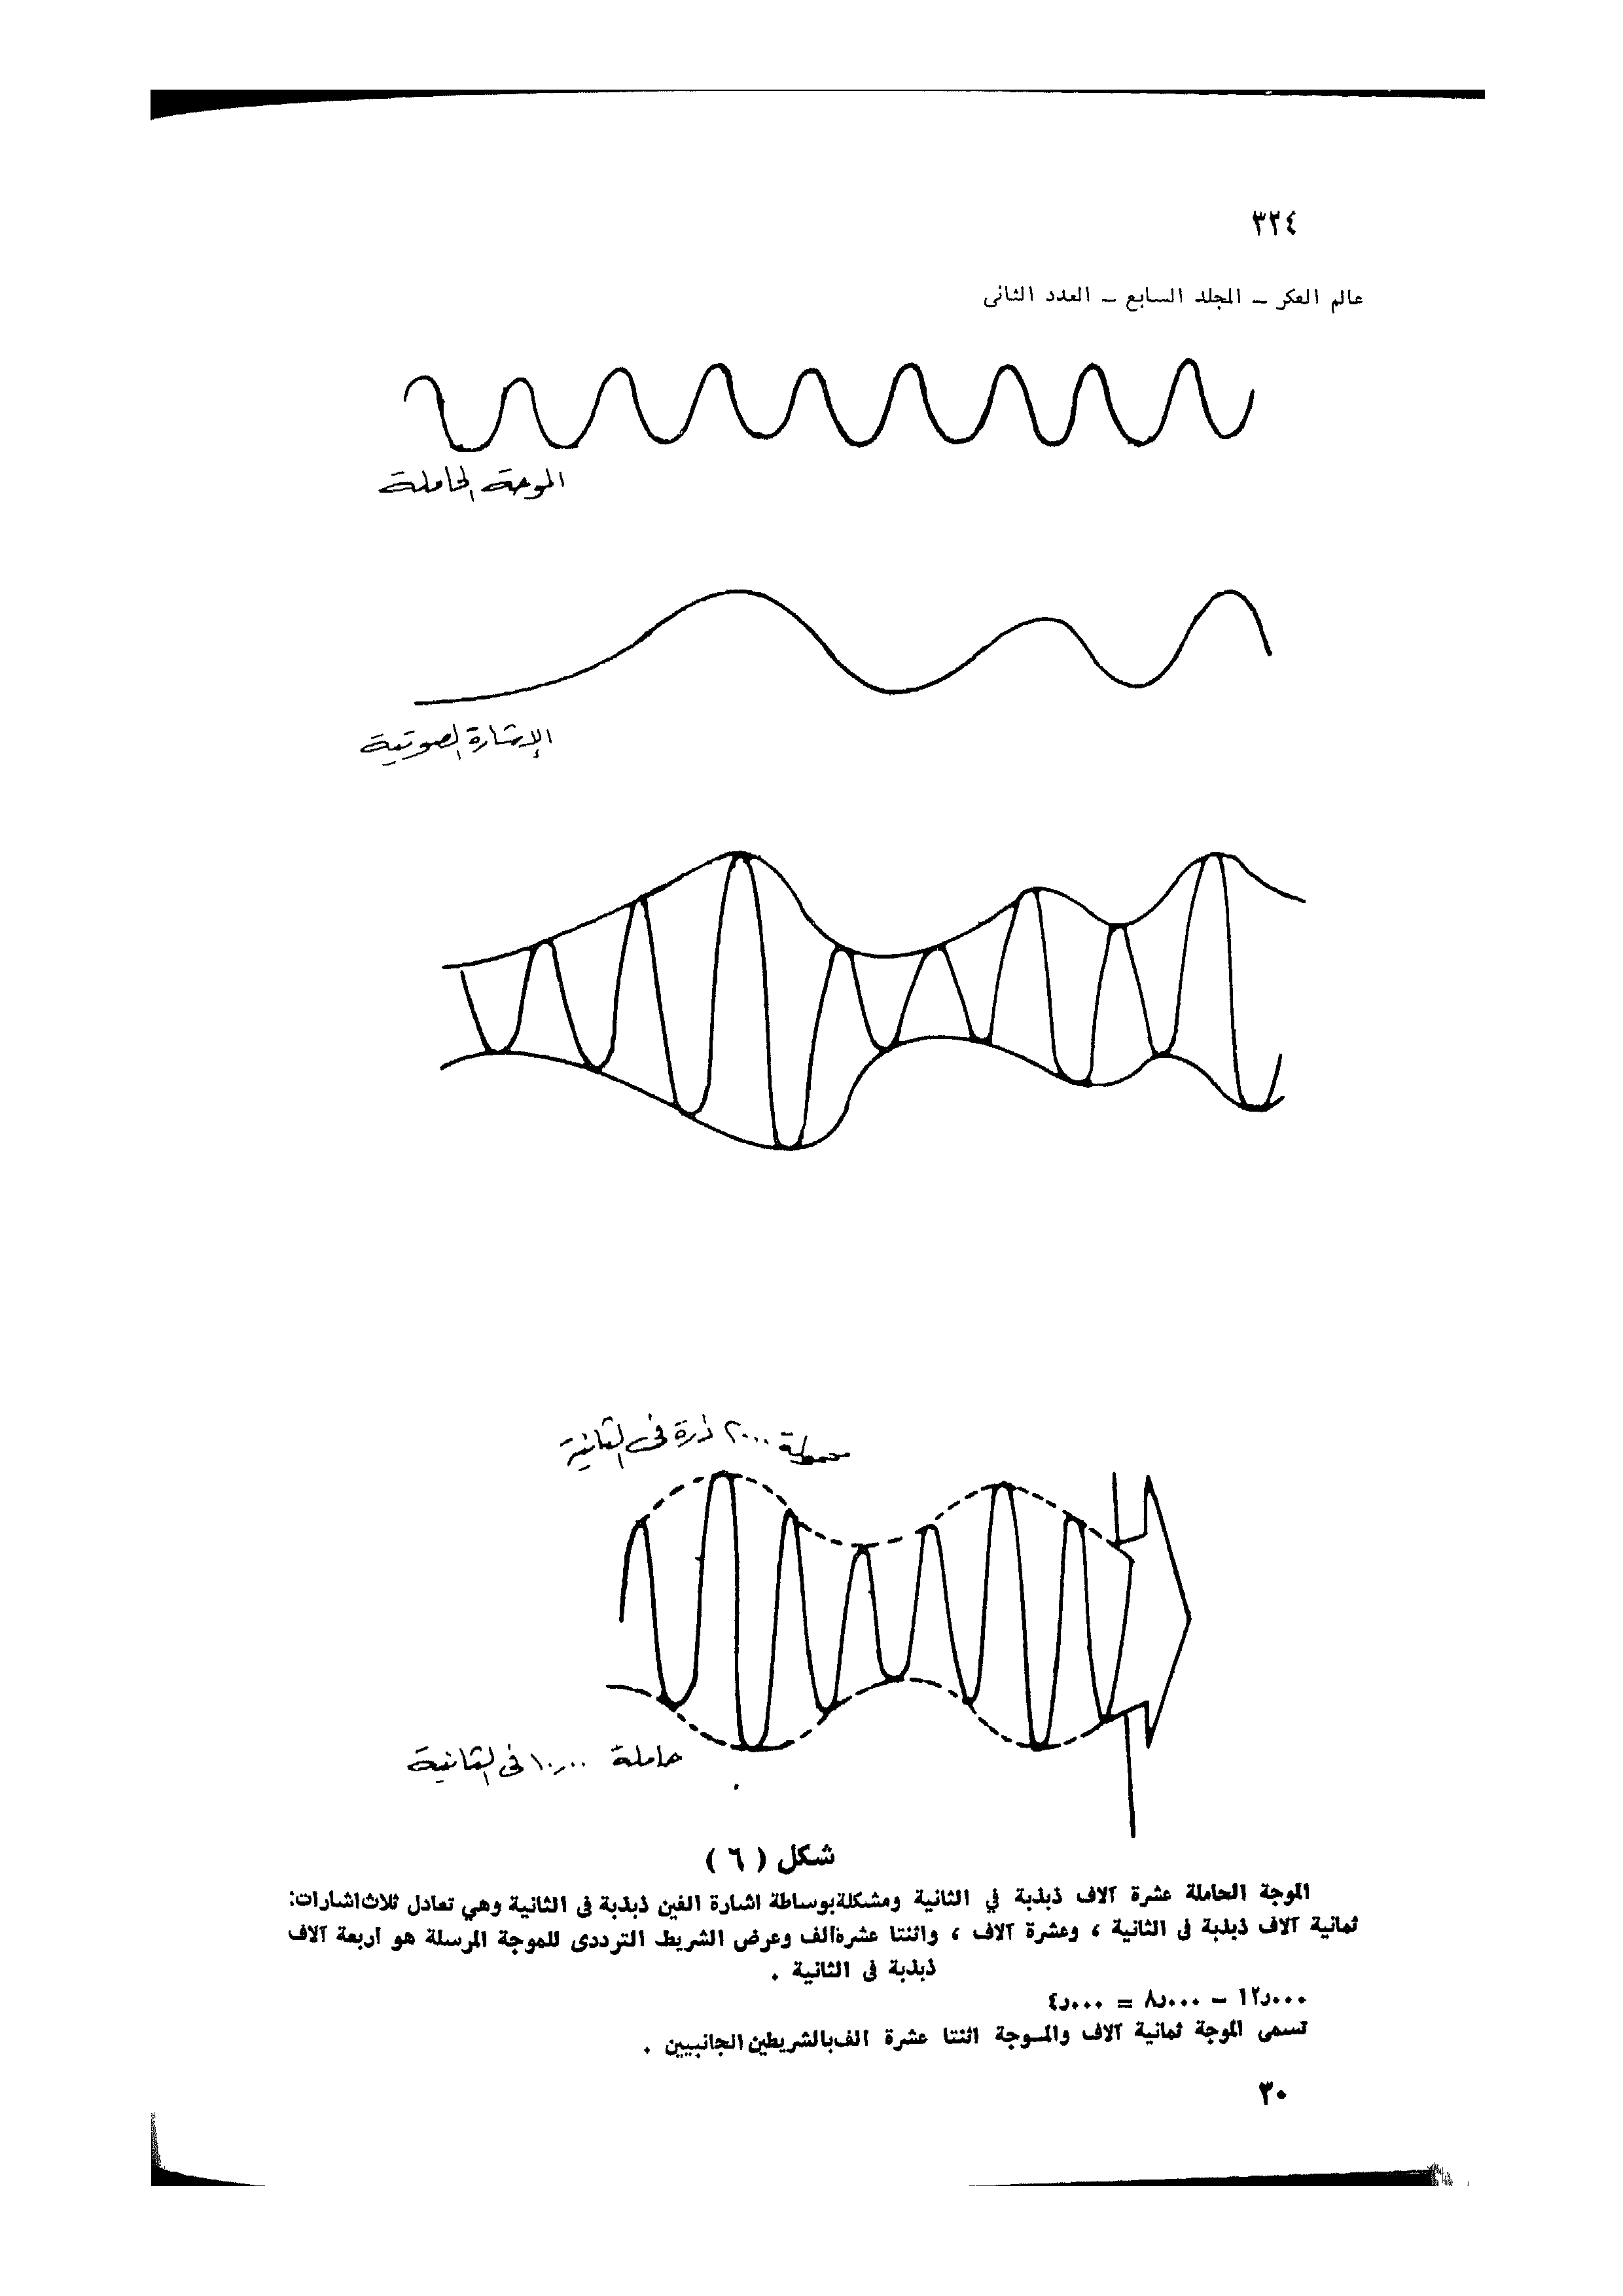 ٣٢٤
عالم الفكر – المجلد السابع – العدد الثانى
الموجة الحاملة
الإشارة الصوتية
٢٠٠٠ ذرة فى الثانية
حاملة ١٠٫٠٠٠ فى الثانية
شكل ( ٦ )
الموجة الحاملة عشرة آلاف ذبذبة في الثانية ومشكلة بوساطة اشارة الفين ذبذبة فى الثانية وهي تعادل ثلاث اشارات:
ثمانية آلاف ذبذبة فى الثانية ، وعشرة آلاف ، واثنتا عشرة ألف وعرض الشريط الترددى للموجة المرسلة هو أربعة آلاف
ذبذبة فى الثانية .
١٢٫٠٠٠ – ٨٫٠٠٠ = ٤٫٠٠٠
تسمى الموجة ثمانية آلاف والموجة اثنتا عشرة الف بالشريطين الجانبيين .
٣٠